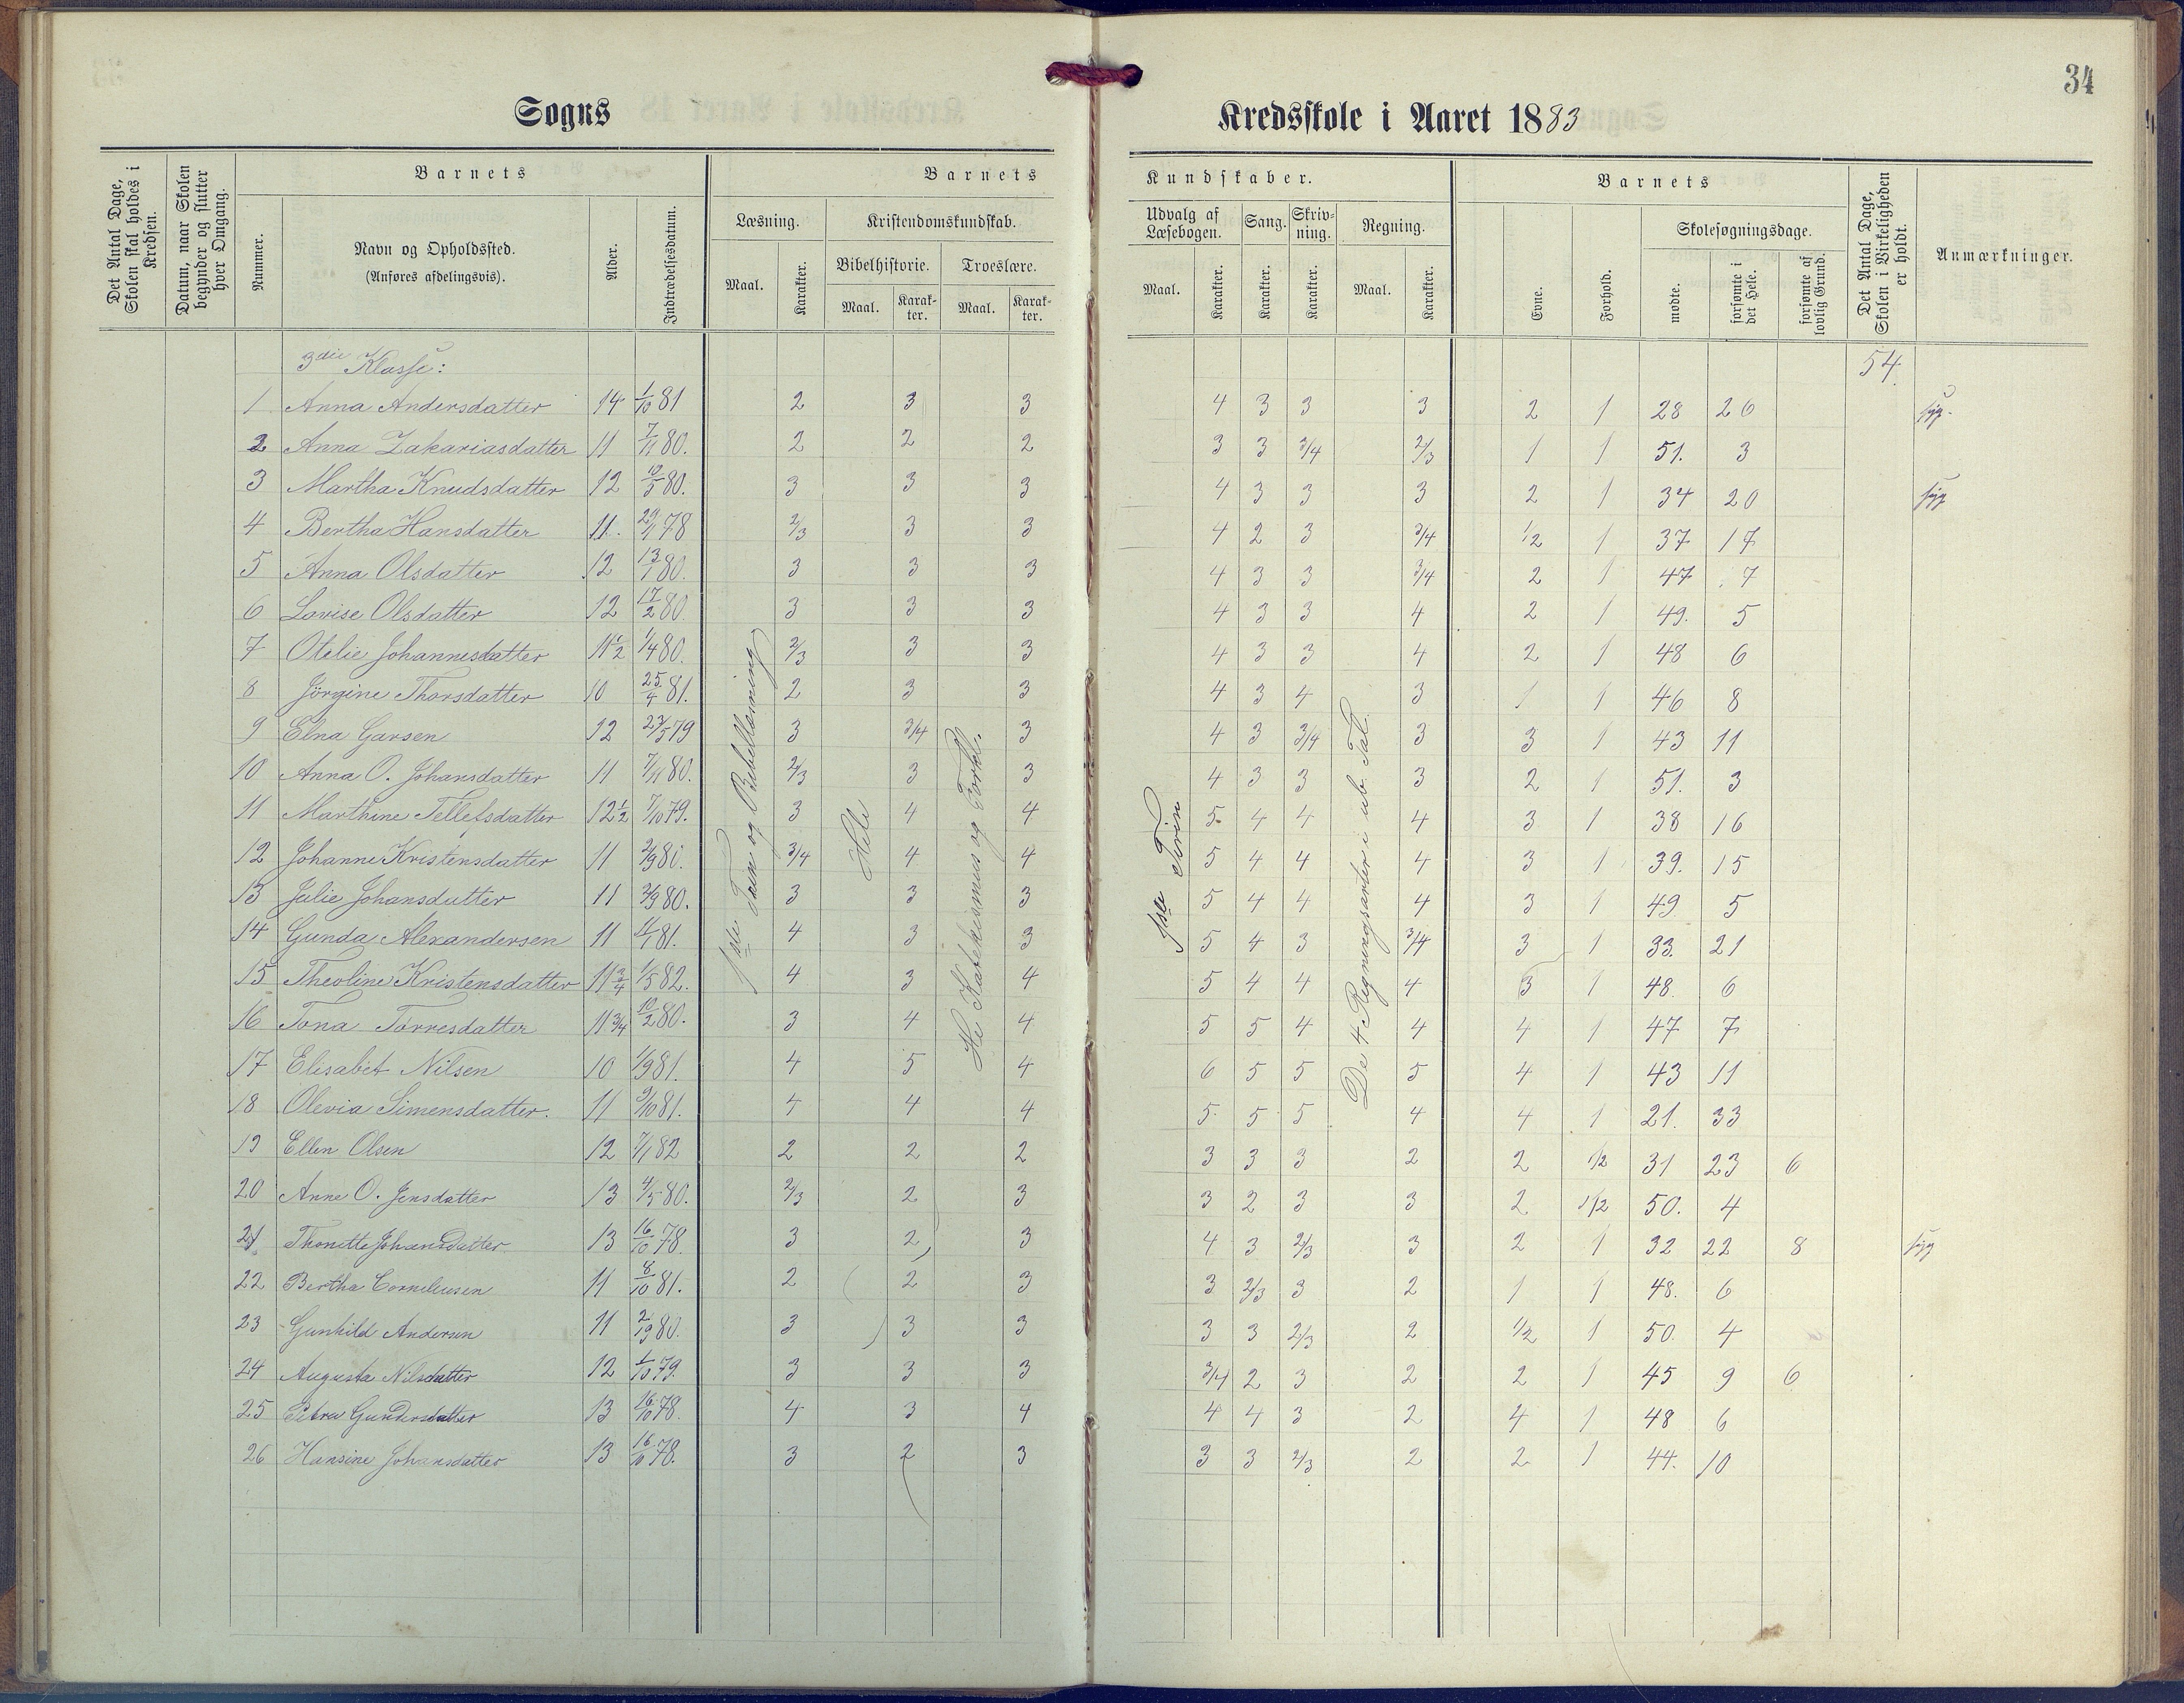 34
Sogns Kredsskole i Aaret 1883
Det Antal Dage, Skolen skal holdes i Kredsen.
Datum, naar Skolen begynder og slutter hver Omgang.
Barnets
Nummer.
Navn og Opholdssted.
(Anføres afdelingsvis).
Alder.
Indtrædelsesdatum.
Barnets Kundskaber.
Læsning.
Maal.
Karakter.
Kristendomskundskab.
Bibelhistorie.
Maal.
Karakter.
Troeslære.
Maal.
Karakter.
Udvalg af Læsebogen.
Maal.
Karakter.
Sang.
Karakter.
Skrivning.
Karakter.
Regning.
Maal.
Karakter.
Barnets
Evne.
Forhold.
Skolesøgningsdage.
mødte.
forsømte i det Hele.
forsømte af lovlig Grund.
Det Antal Dage, Skolen i Virkeligheden er holdt.
Anmærkninger.
3die Klasse: 54.
1 Anna Andersdatter 14 1/10 81 2 3 3 4 3 3 3 2 1 28 26 syg.
2 Anna Zakariasdatter 11 7/11 80. 2 2 2 3 3 3/4 2/3 1 1 51. 3
3 Martha Knudsdatter 12 80. 3 3 3 4 3 3 3 2 1 34 20 syg
4 Bertha Hansdatter 11. 78 2/3 3 3 4 2 3 3/4 1/2 1 37 17
5 Anna Olsdatter 12 13/1 80. 3 3 3 4 3 3 3/4 2 1 47 7
6 Lovise Olsdatter 12 17/2 80 3 3 3 4 3 3 4 2 1 49. 5
7 Otelie Johannesdatter 11 1/2 1/4 80. 2/3 3 3 4 3 3 4 2 1 48 6
8 Jørgine Thorsdatter 10 25/4 81. 2 3 3 4 3 4 3 1 1 46 8
9 Elna Garsen 12 23/5 79 3 3/4 3 4 3 3/4 3 3 1 43 11
10 Anna O. Johansdatter 11 7/11 80. 2/3 3 3 4 3 3 3 2 1 51. 3
11 Marthine Tellefsdatter 12 1/2 7/10 79. 3 4 4 5 4 4 4 3 1 38 16
12 Johanne Kristensdatter 11 2/9 80. 3/4 4 4 5 4 4 4 3 1 39. 15
13 Julie Johansdatter 11 3/9 80. 3 3 3 5 4 4 4 3 1 49 5
14 Gunda Alexandersen 11 4/1 81. 4 3 3 5 4 3 3/4 3 1 33. 21
15 Theoline Kristensdatter 11 3/4 1/5 82. 4 3 4 5 4 4 4 3 1 48. 6
16 Tona Tørresdatter 11 3/4 10/2 80. 3 4 4 5 5 4 4 4 1 47 7
17 Elisabet Nilsen 10 1/9 81. 4 5 4 6 5 5 5 4 1 43 11
18 Olevia Simensdatter. 11 3/10 81. 4 4 4 5 5 5 4 4 1 21. 33
19 Ellen Olsen 12 7/1 82 2 2 2 3 3 3 2 2 1/2 31 23 6
20 Anne O. Jensdatter 13 4/5 80. 2/3 2 3 3 2 3 3 2 1/2 50. 4
21 Thonette Johansdatter 13 16/10 78. 3 2 3 4 3 2/3 3 2 1 32 22 8 syg
22 Bertha Corneliusen 11 8/10 81. 2 2 3 3 2/3 3 2 1 1 48. 6
23 Gunhild Andersen 11 80. 3 3 3 3 3 2/3 2 1/2 1 50. 4
24 Augusta Nilsdatter 12 1/10 79. 3 3 3 3/4 2 3 2 2 1 45 9 6
25 Petra Gundersdatter 13 16/10 78. 4 3 4 4 4 3 2 4 1 48 6
26 Hansine Johansdatter 13 16/10 78. 3 2 3 3 3 2/3 2 2 1 44. 10
1ste Trin og Bibellæsning
Hele
Katekismus og Forkl.
1ste Trin
De 4 Regningsarter i ub. Tal.